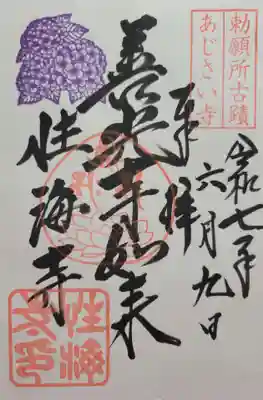 勅願所古蹟
あじさい寺
奉拝
令和七年
六月九日
善光寺如来
性海寺
性海
寺印